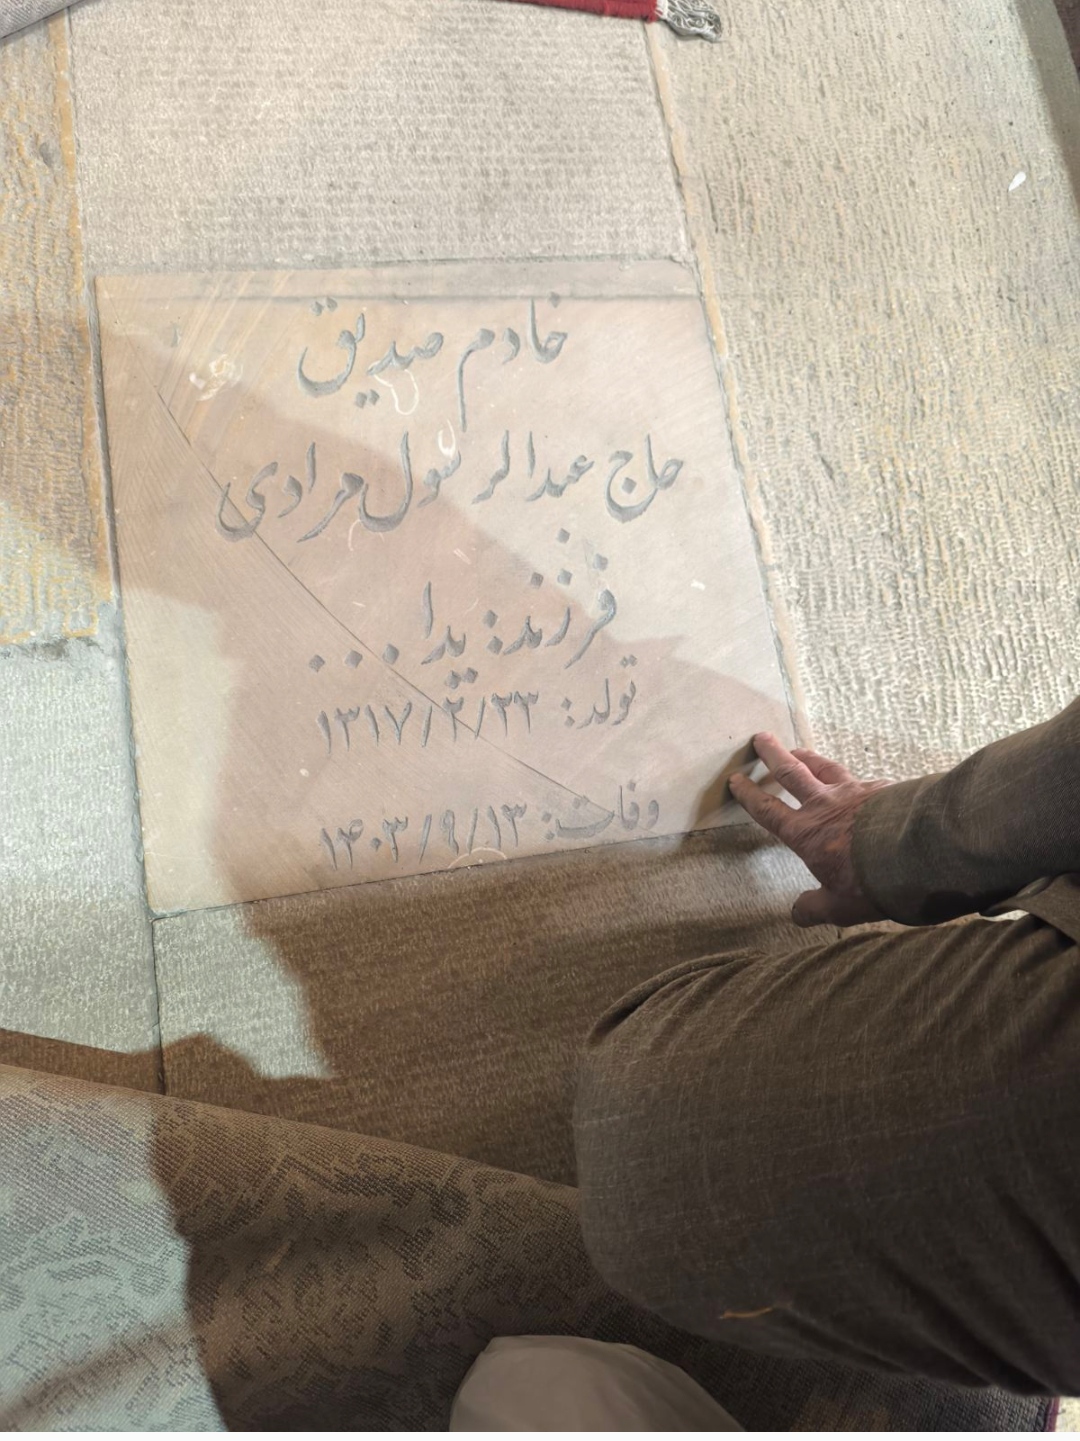 خادم صدیق
حاج عبدالرسول مرادی
فرزند: یدا...
تولد: ۱۳۱۷/۲/۲۳
وفات: ۱۴۰۳/۹/۱۳